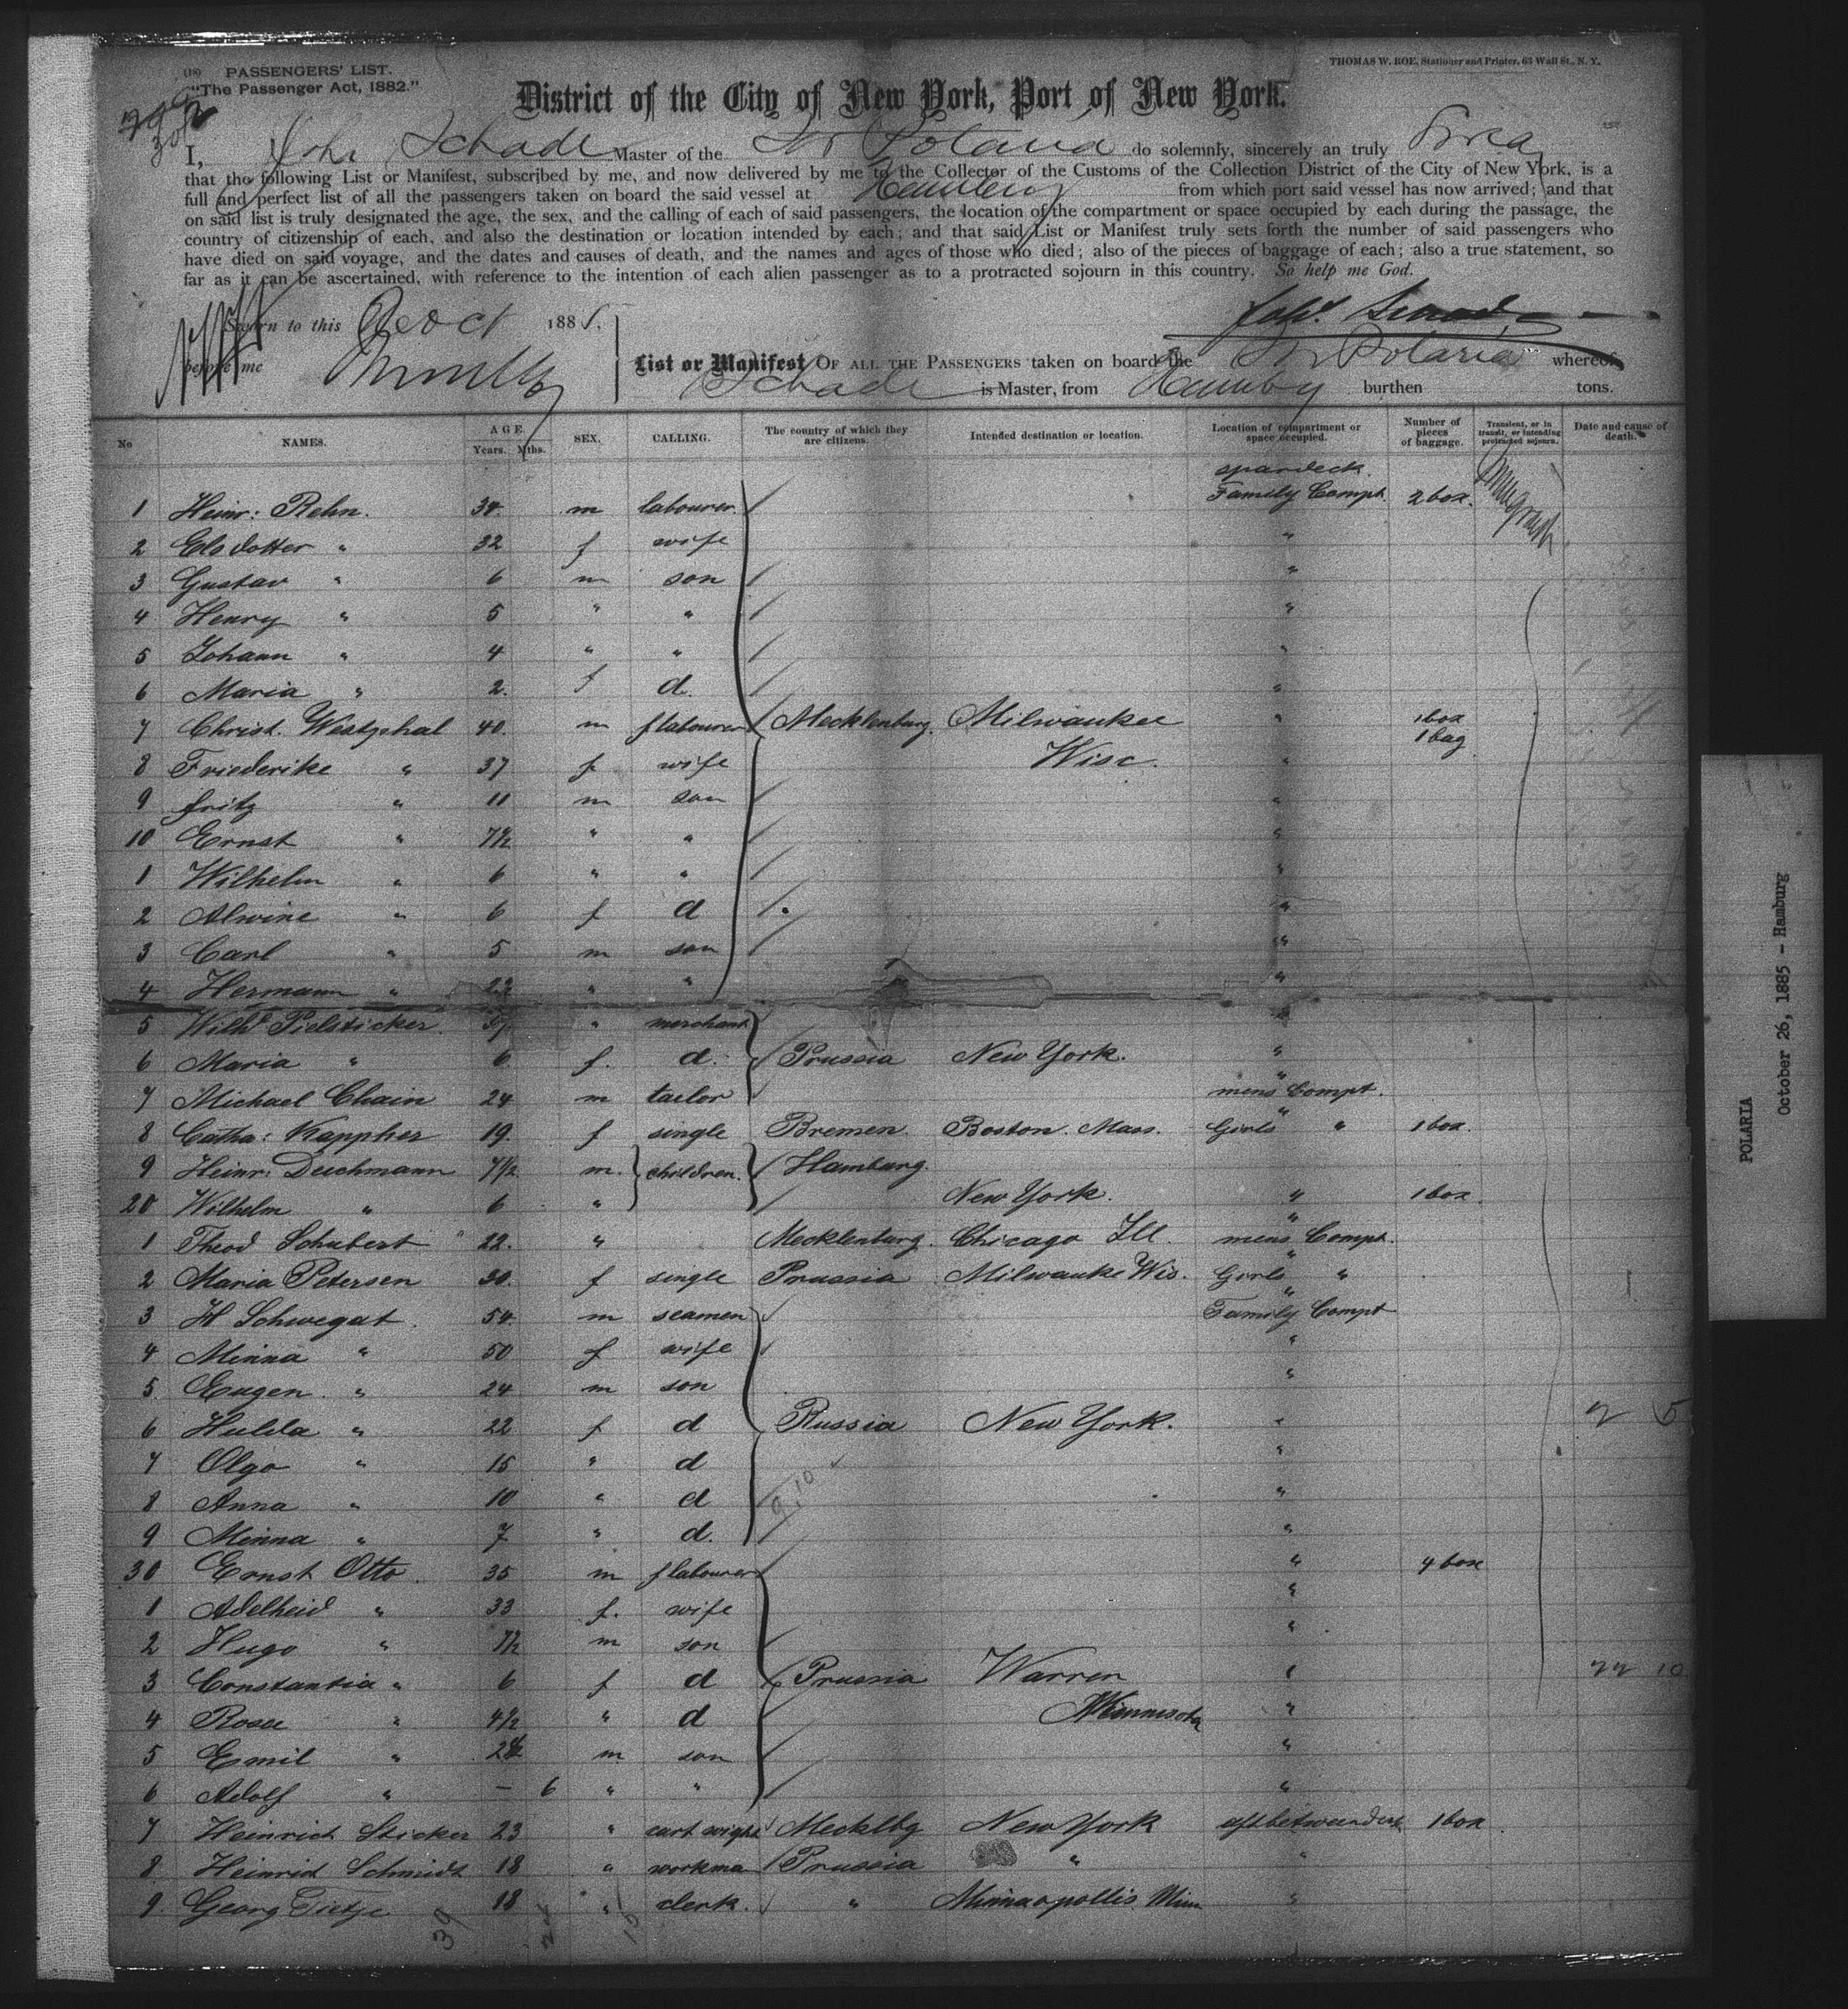 (18) PASSENGERS' LIST.
"The Passenger Act, 1882."
THOMAS W. ROE, Stationer and Printer, 63 Wall St., N. Y.
District of the City of New York, Port of New York.
I, Joh: Schade Master of the Str Polaria do solemnly, sincerely an truly Swear
that the following List or Manifest, subscribed by me, and now delivered by me to the Collector of the Customs of the Collection District of the City of New York, is a
full and perfect list of all the passengers taken on board the said vessel at Hamburg from which port said vessel has now arrived; and that
on said list is truly designated the age, the sex, and the calling of each of said passengers, the location of the compartment or space occupied by each during the passage, the
country of citizenship of each, and also the destination or location intended by each; and that said List or Manifest truly sets forth the number of said passengers who
have died on said voyage, and the dates and causes of death, and the names and ages of those who died; also of the pieces of baggage of each; also a true statement, so
far as it can be ascertained, with reference to the intention of each alien passenger as to a protracted sojourn in this country. So help me God.
Sworn to this Oct 1885. Joh. Schade
before me
List or Manifest OF ALL THE PASSENGERS taken on board the Str Polaria whereof
Schade is Master, from Hamburg burthen tons.
No NAMES. AGE. Years. Mths. SEX. CALLING. The country of which they are citizens. Intended destination or location. Location of compartment or space occupied. Number of pieces of baggage. Transient, or in transit, or intending protracted sojourn. Date and cause of death.
spardeck
1 Heinr: Rehn. 34. m labourer Family Compt. 2 box.
2 Elsdotter " 32 f wife "
3 Gustav " 6 m son "
4 Henry " 5 " " "
5 Johann " 4 " " "
6 Maria " 2. f d. "
7 Christ. Westphal 40. m f labourer Mecklenburg. Milwaukee " 1 box 1 bag
8 Friederike " 37 f wife Wisc. "
9 Fritz " 11 m son "
10 Ernst " 7½ " " "
1 Wilhelm " 6 " " "
2 Alwine " 6 f d "
3 Carl " 5 m son "
4 Hermann " " " "
5 Wilh. Pielsticker 37 " merchant "
6 Maria " 6 f. d. Prussia New York. "
7 Michael Chain 24 m tailor mens Compt.
8 Catha: Kappher 19. f single Bremen Boston. Mass. Girls " 1 box.
9 Heinr: Deichmann 7½ m. children. Hamburg.
20 Wilhelm " 6 " New York. " 1 box.
1 Theod Schubert 22. " Mecklenburg. Chicago Ill. mens Compt.
2 Maria Petersen 30. f single Prussia Milwauke Wis. Girls "
3 H Schwegat. 54. m seamen Family Compt
4 Minna " 50 f wife "
5 Eugen. " 24 m son "
6 Hulda " 22 f d Russia New York. "
7 Olga " 15 " d "
8 Anna " 10 " d "
9 Minna " 7 " d. "
30 Ernst Otto. 35 m f labourer " 4 box
1 Adelheid " 33 f. wife "
2 Hugo " 7½ m son "
3 Constantia " 6 f d Prussia Warren "
4 Rosa " 4½ " d Minnisota "
5 Emil " 2½ m son "
6 Adolf " – 6 " " "
7 Heinrich Sticker 23 " cart wight Mecklbg New York aftbetweendeck 1 box.
8 Heinrich Schmidt 18 " workma Prussia " "
9. Georg Tietje 18 " clerk. " Minnaopollis Minn "
39
POLARIA
October 26, 1885 - Hamburg